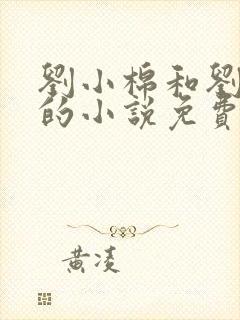 劉小棉和劉
的小說免費
黃凌